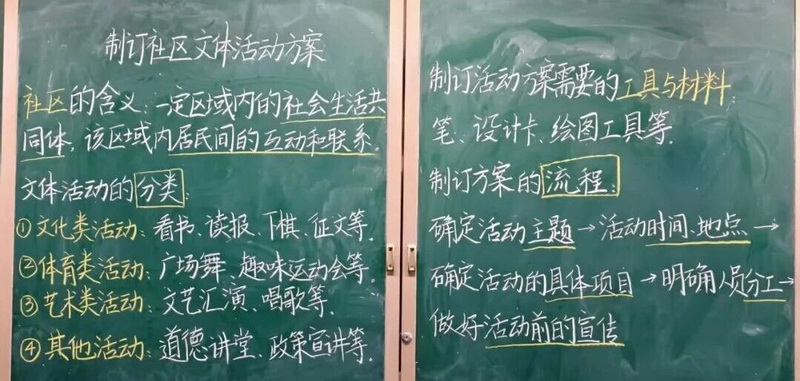 制订社区文体活动方案
社区的含义:一定区域内的社会生活共
同体,该区域内居民间的互动和联系.
文体活动的分类:
①文化类活动:看书、读报、下棋、征文等.
②体育类活动:广场舞、趣味运动会等.
③艺术类活动:文艺汇演、唱歌等.
④其他活动:道德讲堂、政策宣讲等.
制订活动方案需要的工具与材料:
笔、设计卡、绘图工具等.
制订方案的流程:
确定活动主题→活动时间、地点→
确定活动的具体项目→明确人员分工→
做好活动前的宣传